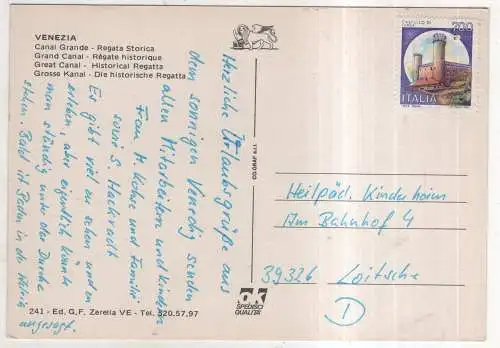 VENEZIA
Canal Grande - Regata Storica
Grand Canal - Régate historique
Great Canal - Historical Regatta
Grosse Kanal - Die historische Regatta
Herzliche Urlaubsgrüße aus
dem sonnigen Venedig senden
allen Mitarbeitern und Kindern
Frau M. und Familie
sowie S. Hackradt
Es gibt viel zu sehen und zu
erleben, aber eigentlich könnte
man ständig unter der Dusche
stehen. Bald ist Baden in der Adria
angesagt.
241 - Ed. G.F. Zerella VE - Tel. 520.57.97
CO.GRAF s.r.l.
ok
SPEDISCI
QUALITÀ
CASTELLO DI
700
ITALIA
Heilpäd. Kinderheim
Am Bahnhof 4
39326 Loitsche
D